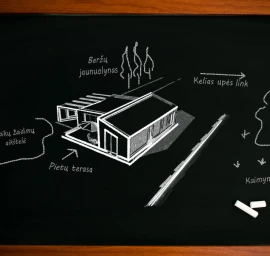 Beržų
jaunuolynas
Kelias upės link
žaidimų
aikštelė
Pietų terasa